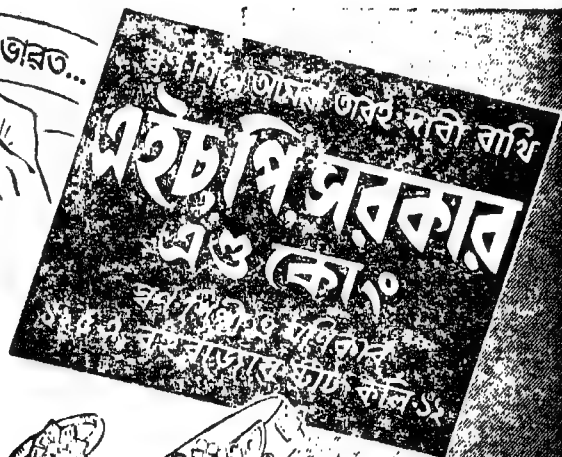 ভারত...
স্বর্ণ শিল্পে আমরা তারই দাবী রাখি
এইচ্.পি.সরকার
এণ্ড কোং
স্বর্ণ শিল্পী ও মণিকার
বহুবাজার ষ্ট্রীট কলি-১২